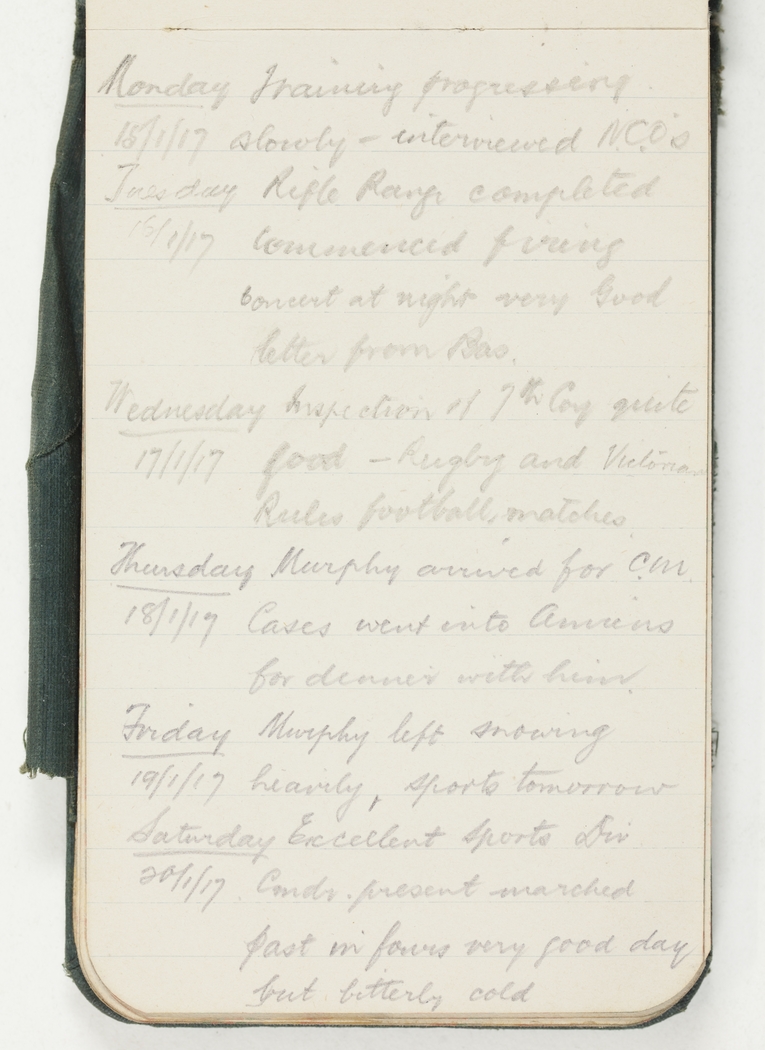 Monday Training progressing
15/1/17 slowly - interviewed N.C.O's
Tuesday Rifle Range completed
16/1/17 Commenced firing
concert at night very Good
letter from Bas.
Wednesday Inspection of 7th Coy quite
17/1/17 good - Rugby and Victorian
Rules football, matches
Thursday Murphy arrived for C.M.
18/1/17 Cases went into Amiens
for dinner with him.
Friday Murphy left snowing
19/1/17 heavily, sports tomorrow
Saturday Excellent Sports Div
20/1/17 Cmdr. present marched
past in fours very good day
but bitterly cold